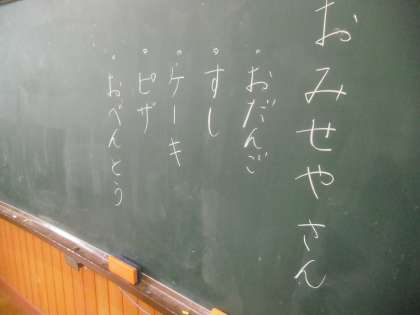 おみせやさん
。おだんご
。すし
。ケーキ
。ピザ
。おべんとう